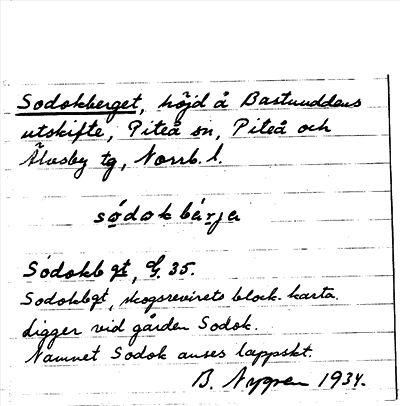 Sodokberget, höjd å Bastuuddens
utskifte, Piteå sn, Piteå och
Älvsby tg, Norrb. l.
sódokbàrja
Sodokbgt, G. 35.
Sodokbgt, skogsrevirets block. karta.
Ligger vid gården Sodok.
Namnet Sodok anses lappskt.
B. Nygren 1934.